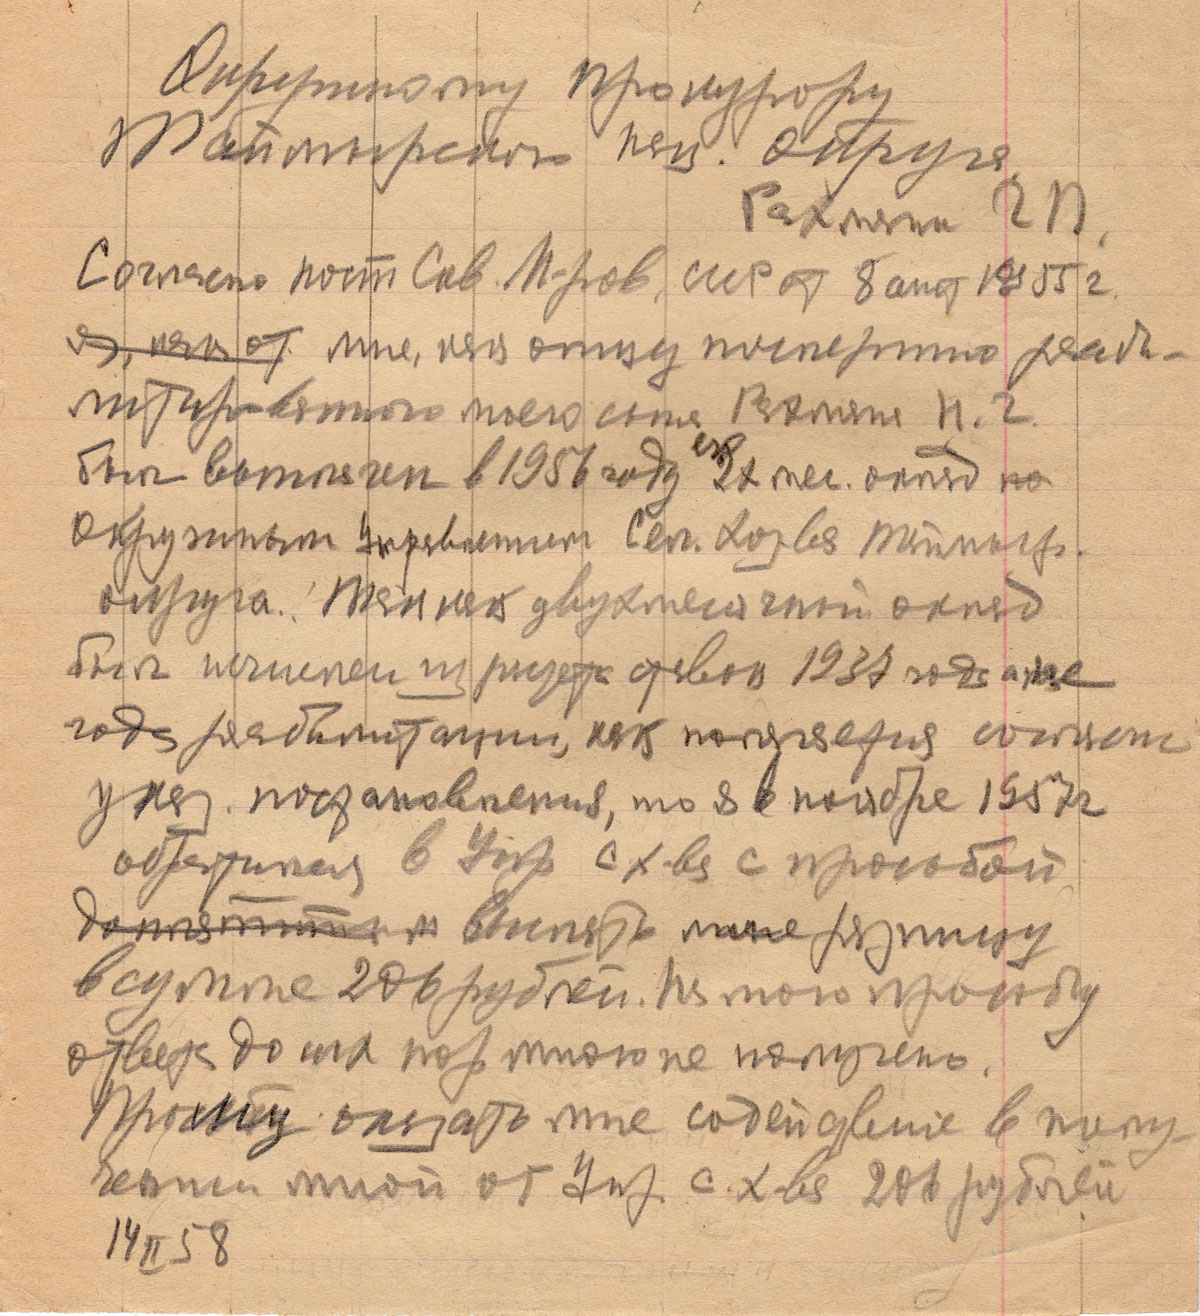 Окружному прокурору
Таймырского нац. округа.
Рахмана Г П.
Согласно пост Сов. М-ров, СССР от 8 сент 1955 г.
я, как от. мне, как отцу посмертно реаби-
литированного моего сына Рахмана Н. Г.
был выплачен в 1956 году его 2х мес. оклад по
окружным Управлением Сел. Хоз-ва Таймыр.
округа. Так как двухмесячный оклад
был исчислен из расчета ставок 1937 года а не
года реабилитации, как полагается согласно
указ. постановления, то я в ноябре 1957 г
обратился в Упр с х-ва с просьбой
выслать мне разницу
в сумме 206 рублей. На мою просьбу
ответа до сих пор мною не получено.
Прошу оказать мне содействие в полу-
чении мной от Упр. с. х-ва 206 рублей
14 II 58